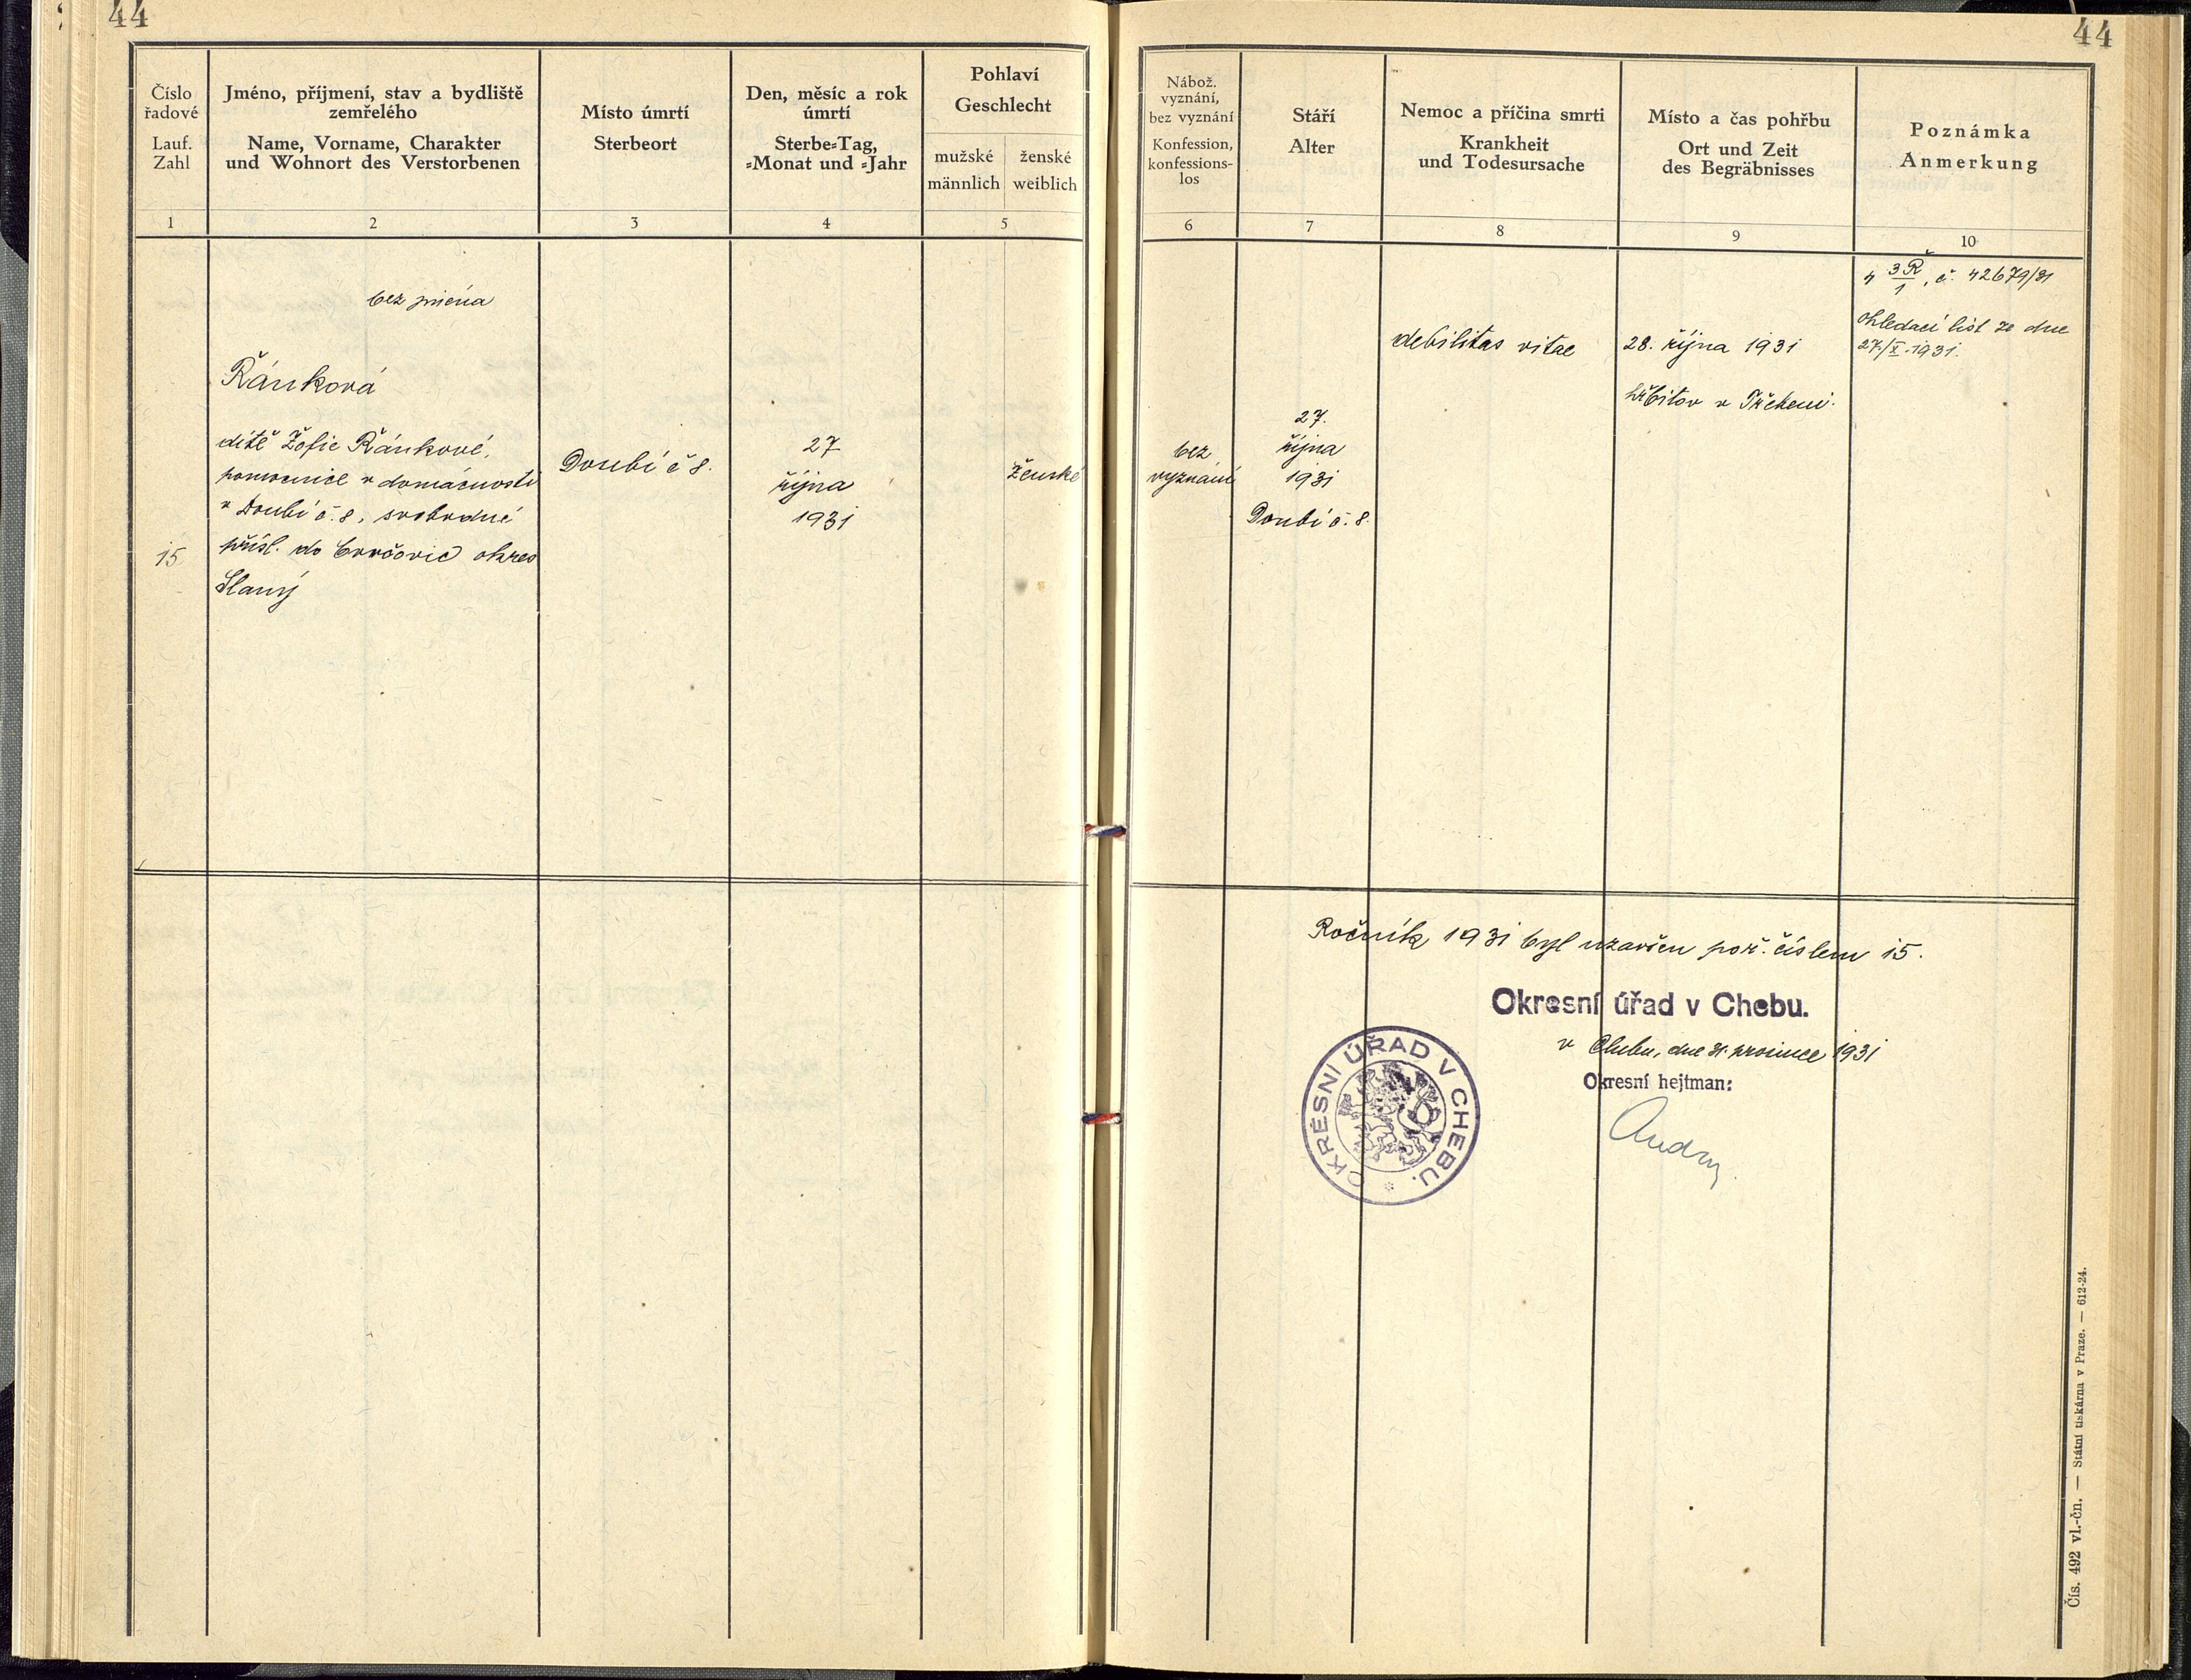 44
44
Číslo
řadové
Lauf.
Zahl
Jméno, příjmení, stav a bydliště
zemřelého
Name, Vorname, Charakter
und Wohnort des Verstorbenen
Místo úmrtí
Sterbeort
Den, měsíc a rok
úmrtí
Sterbe=Tag,
=Monat und =Jahr
Pohlaví
Geschlecht
mužské
männlich
ženské
weiblich
Nábož.
vyznání,
bez vyznání
Konfession,
konfessions-
los
Stáří
Alter
Nemoc a příčina smrti
Krankheit
und Todesursache
Místo a čas pohřbu
Ort und Zeit
des Begräbnisses
Poznámka
Anmerkung
1
2
3
4
5
6
7
8
9
10
15
bez jména
Řánková
dítě Žofie Řánkové,
pomocnice v domácnosti
v Doubí č. 8, svobodné
přísl. do okres
Slaný
Doubí č 8.
27
října
1931
ženské
bez
vyznání
27.
října
1931
Doubí č. 8.
debilitas vitae
28. října 1931
hřbitov v
4 3Ř/1, č. 42679/31
ohledací list ze dne
27./X. 1931.
Ročník 1931 byl uzavřen poř. číslem 15.
Okresní úřad v Chebu.
v Chebu, dne 31. prosince 1931
Okresní hejtman:
OKRESNÍ ÚŘAD V CHEBU.
Čís. 492 vl.-čn. — Státní tiskárna v Praze. — 612-24.